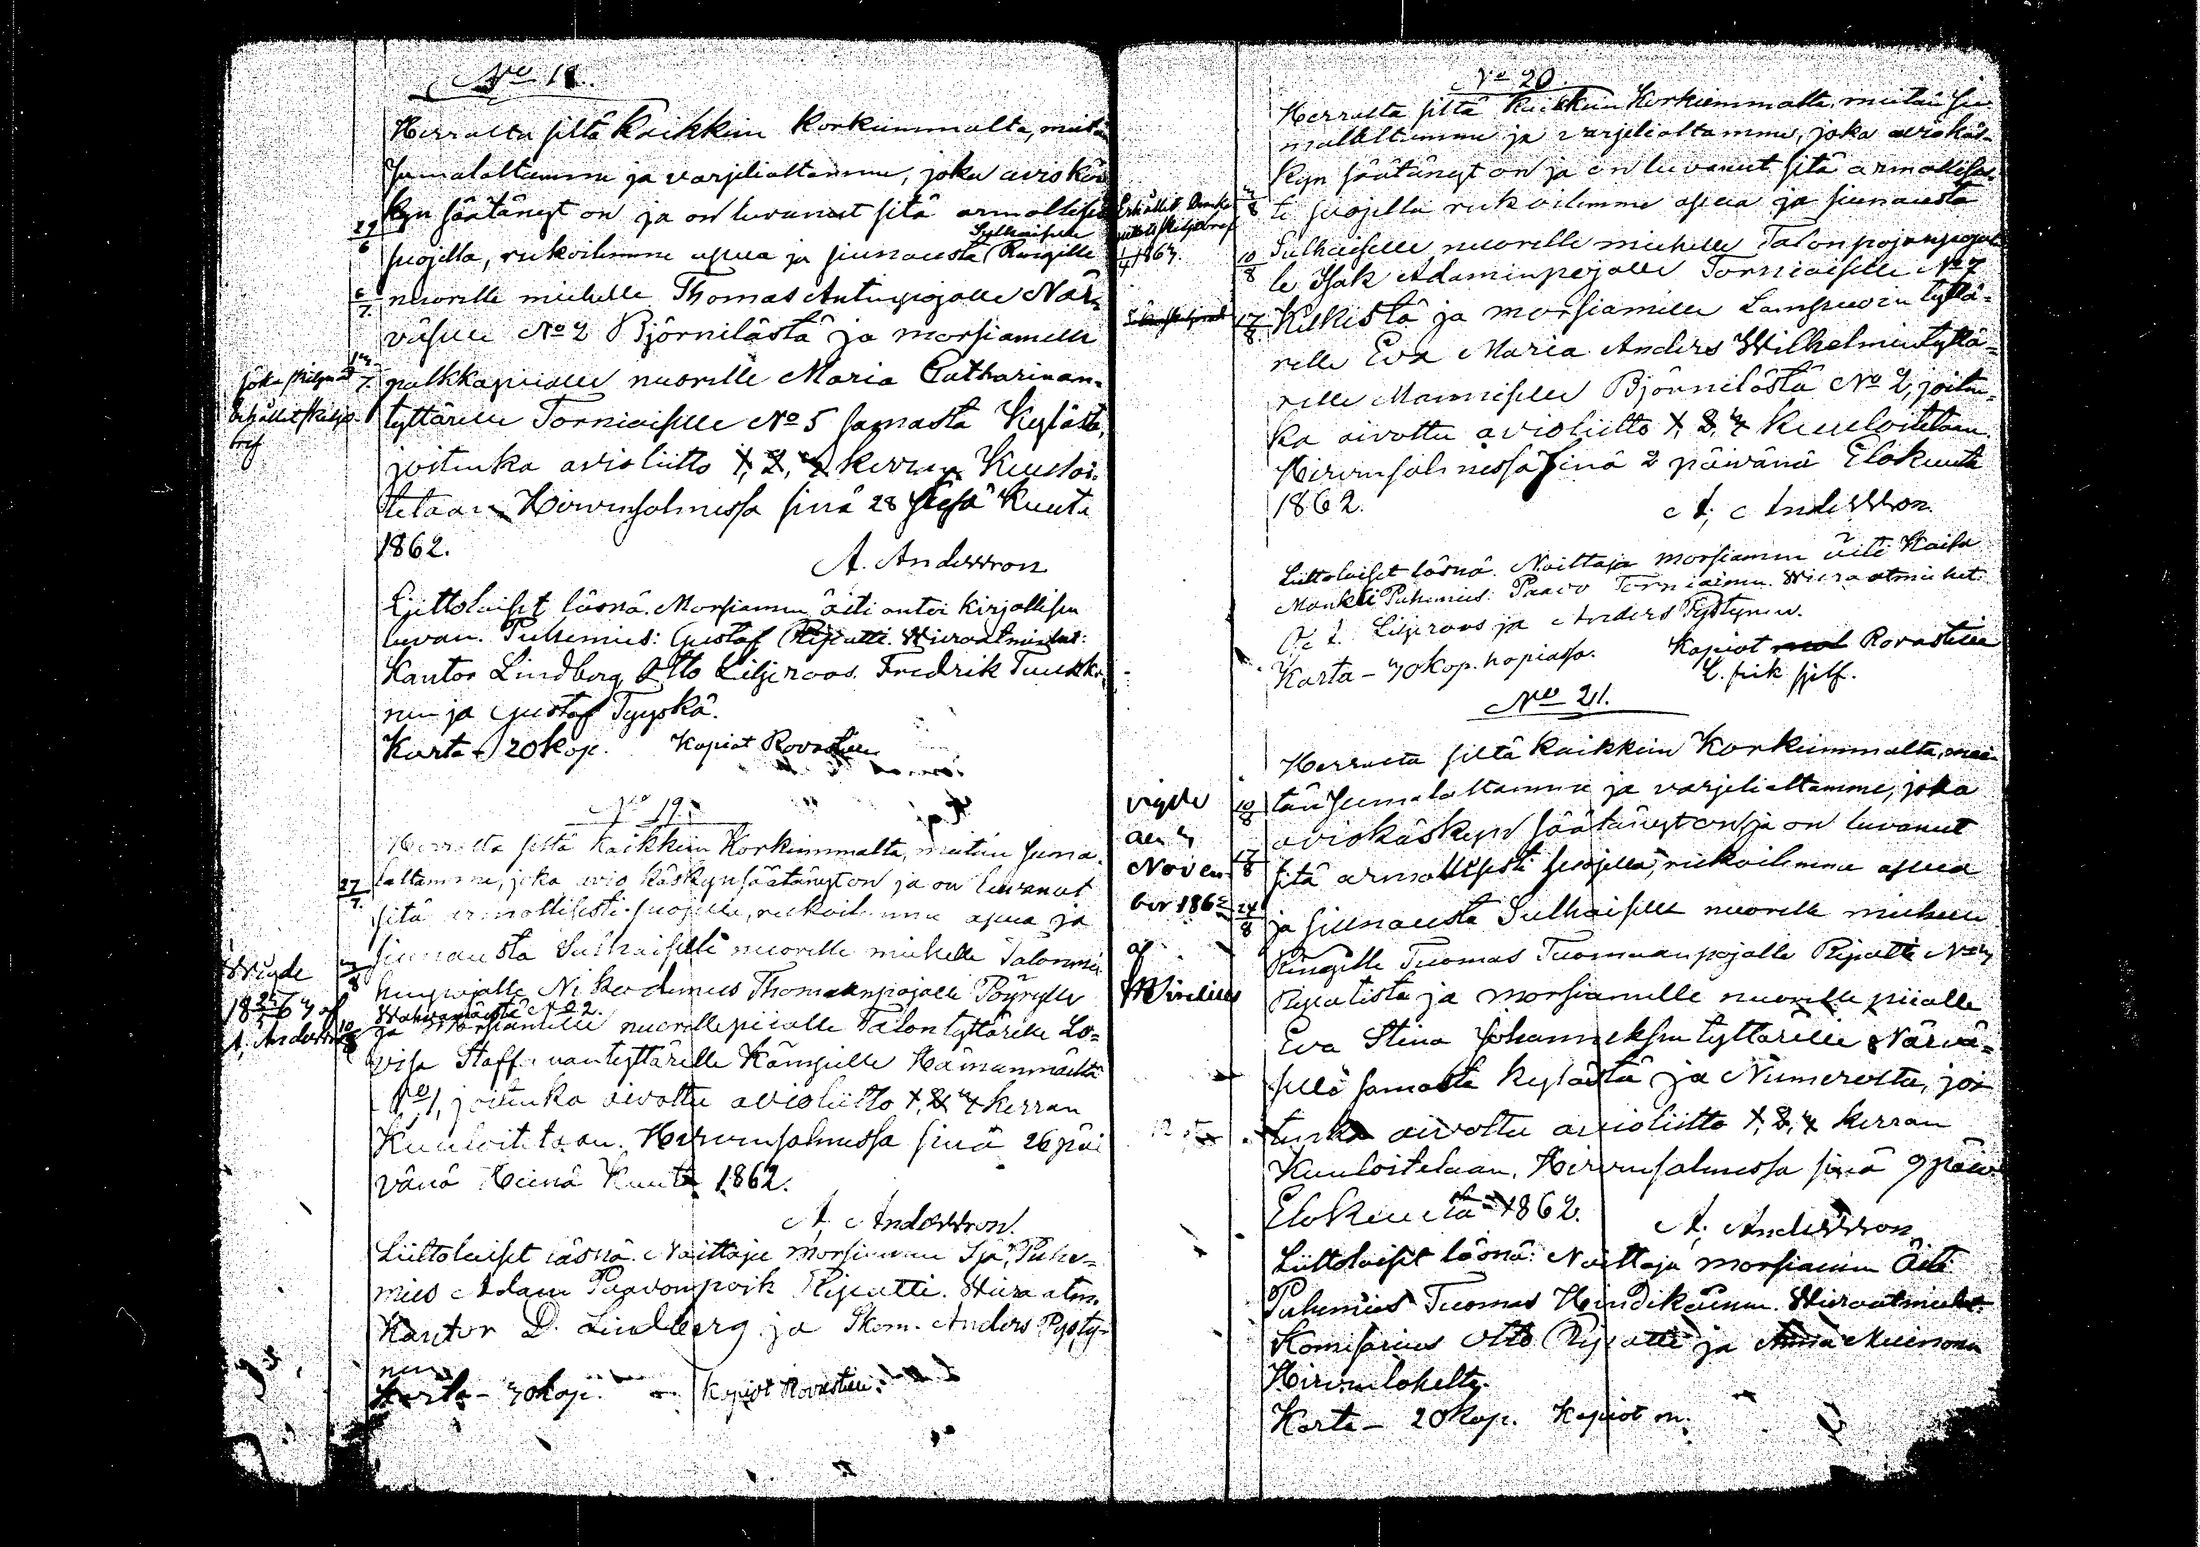 No 18.
Herralta siltä kaikkein korkeimmalta, meidän
Jumalaltamme ja varjelialtamme, joka aviokäs-
kyn säätänyt on ja on luvannut sitä armollisesti
29/6
suojella, rukoilemme apua ja siunausta Sulhaiselle Rengille
6/7
nuorelle miehelle Thomas Antinpojalle När-
väselle No 2 Björnilästä ja morsiamelle
joka skilgnad
erhållit skiljo-
bref
piikkapiialle nuorelle Maria Catharinan-
tyttärelle Torniaiselle No 5 samasta Kylästä,
joitenka avioliitto 1, 2, 3 kerran Kuuloi-
tetaan Hirvensalmessa sinä 28 Kesä Kuuta
1862.
A. Andersson
Liittolaiset läsnä. Morsiamen äiti antoi kirjallisen
luvan. Puhemies: Gustaf Ripatti. Wieraatmiehet:
Kantor Lindberg Otto Liljeroos. Fredrik Tuukka-
nen ja Gustaf Tyyskä.
Karta - 20 kop. Kopiot Rovastille
No 19.
Herralta siltä kaikkein Korkeimmalta, meidän Juma-
laltamme, joka avio käskyn säätänyt on ja on luvannut
27/7
sitä armollisesti suojella, rukoilemme apua ja
siunausta Sulhaiselle nuorelle miehelle Talonmie-
3/8
henpojalle Nikodemus Thomaanpojalle Pöyrylle
Wahvamäestä No 2.
Wigde
A. Andersson
10/8
ja morsiamelle nuorellepiialle Talontyttärelle Lo-
visa Staffanantyttärelle Kämpille Hämeenmäeltä
No 1, joitenka aivottu avioliitto 1, 2, 3 kerran
Kuuloitetaan. Hirvensalmessa sinä 26 päi
vänä Heinä Kuuta 1862.
A. Andersson.
Liittolaiset läsnä. Naittaja morsiamen Isä, Puhe-
mies Adam Paavonpoik Ripatti. Wieraatm.
Kantor D. Lindberg ja Skom. Anders Pysty-
nen
Karta - 30 kop. Kopiot Rovastille.
No 20.
Herralta siltä Kaikkein Korkeimmalta, meidän Ju-
malaltamme ja varjelialtamme, joka aviokäs-
kyn säätänyt on ja on luvannut sitä armollises-
3/8
ti suojella rukoilemme apua ja siunausta
1/4 1863.
10/8
Sulhaiselle nuorelle miehelle Talonpojanpojal-
le Isak Adaminpojalle Torniaiselle No 7
17/8
Kilkistä ja morsiamelle Lampuodin tyttä-
relle Eva Maria Anders Wilhelmintyttä-
relle Manniselle Björnilästä No 2, joiten-
ka aivottu avioliitto 1, 2, 3 kuuloitetaan.
Hirvensalmessa sinä 2 päivänä Elokuuta
1862.
A. Andersson.
Liittolaiset läsnä. Naittaja morsiamen äiti Kaisa
Mankki Puhemies: Paavo Torniainen. Wieraatmiehet:
O. L. Liljeroos ja Anders Pystynen.
Karta - 30 kop. hopiassa. Kopiot Rovastille
No 21.
Herralta siltä kaikkein Korkeimmalta, mei-
10/8
dän Jumalaltamme ja varjelialtamme, joka
aviokäskyn säätänyt on ja on luvannut
17/8
sitä armollisesti suojella, rukoilemme apua
24/8
ja siunausta Sulhaiselle nuorelle miehelle
vigde
den 3
Novem-
ber 1862
af
Rengille Tuomas Tuomaanpojalle Ripatti No 3
Ripatista ja morsiamelle nuorelle piialle
Eva Stina Johanneksen tyttärelle Närvä-
selle samasta kylästä ja Numerosta, joi-
tenka aivottu avioliitto 1, 2, 3 kerran
Kuuloitetaan. Hirvensalmessa sinä 9 päiv.
Elokuuta 1862.
A. Andersson
Liittolaiset läsnä: Naittaja morsiamen Äiti
Puhemies Tuomas Hindikainen. Wieraatmiehet
Komisarius Otto Ripatti ja Muinonen
Hirvenlohelta.
Karta - 20 kop. Kopiot m.